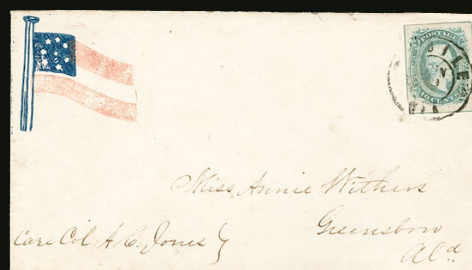 POSTAGE
Miss Annie Withers
Greensboro
Care Col. A. C. Jones Ala